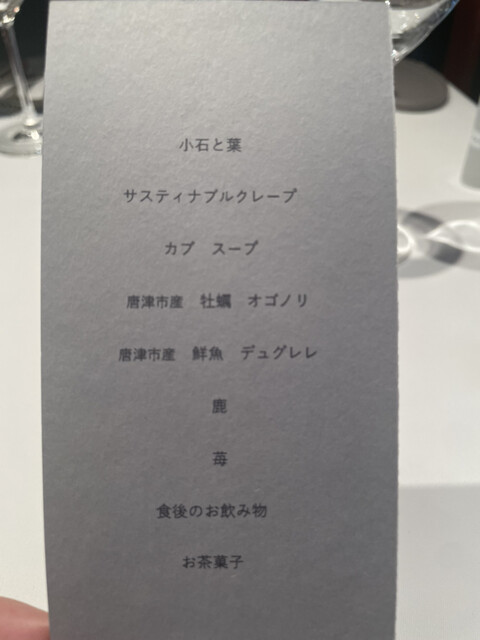 小石と葉
サスティナブルクレープ
カブ　スープ
唐津市産　牡蠣　オゴノリ
唐津市産　鮮魚　デュグレレ
鹿
苺
食後のお飲み物
お茶菓子